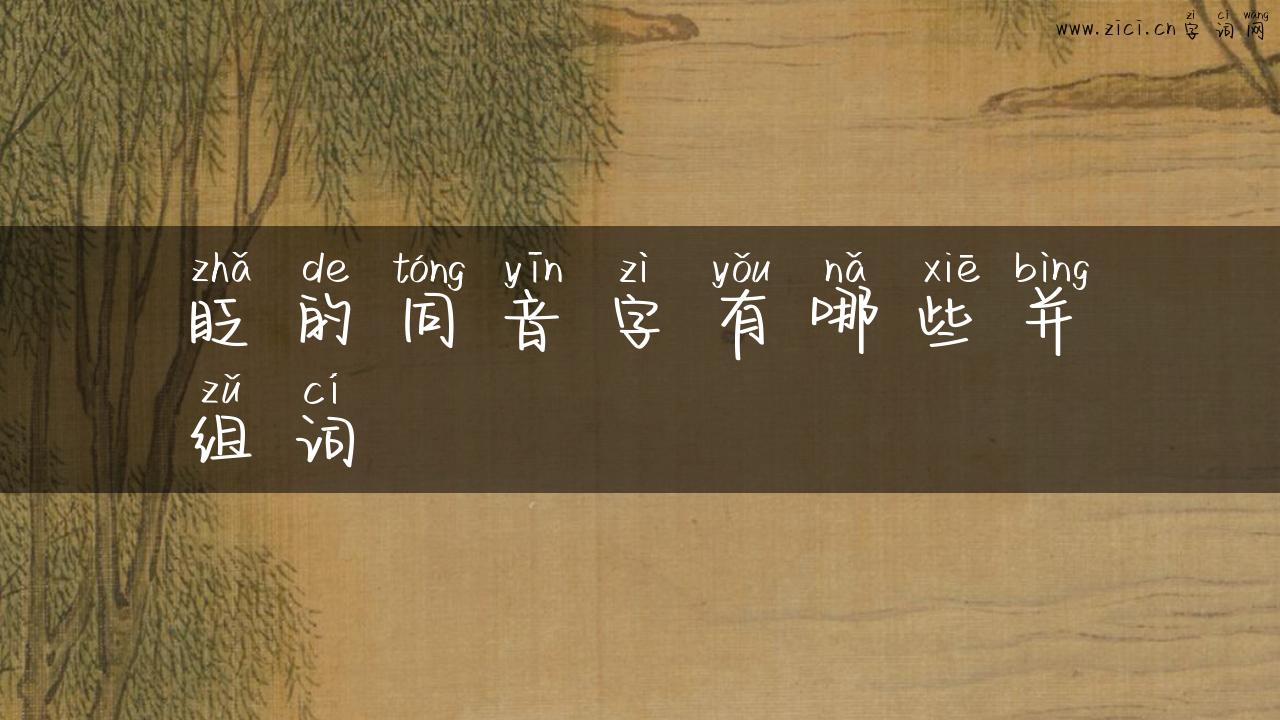 zì cí wǎng
www.zici.cn字词网
zhǎ de tóng yīn zì yǒu nǎ xiē bìng
眨的同音字有哪些并
zǔ cí
组词